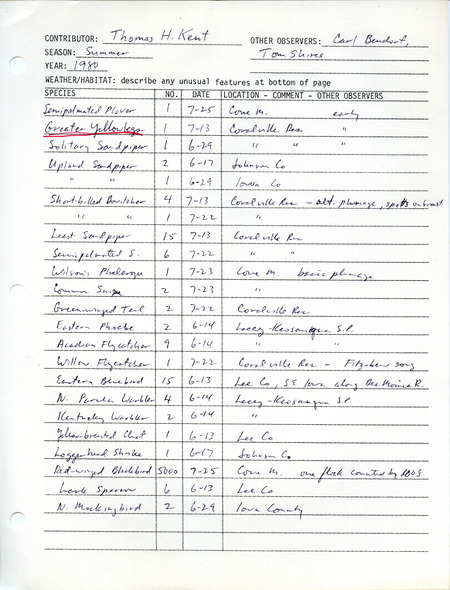 CONTRIBUTOR: Thomas H. Kent OTHER OBSERVERS: Carl Bendorf,
SEASON: Summer Tom Shires
YEAR: 1980
WEATHER/HABITAT: describe any unusual features at bottom of page
SPECIES NO. DATE LOCATION - COMMENT - OTHER OBSERVERS
Semipalmated Plover 1 7-25 Cone M. early
Greater Yellowlegs 1 7-13 Coralville Res "
Solitary Sandpiper 1 6-29 " " "
Upland Sandpiper 2 6-17 Johnson Co
" " 1 6-29 Iowa Co
Short-billed Dowitcher 4 7-13 Coralville Res - alt. plumage, spots on breast
" " 1 7-22 "
Least Sandpiper 15 7-13 Coralville Res
Semipalmated S. 6 7-22 " "
Wilson's Phalarope 1 7-23 Cone M. basic plumage
Common Snipe 2 7-23 "
Green-winged Teal 2 7-22 Coralville Res
Eastern Phoebe 2 6-14 Lacey-Keosauqua S.P.
Acadian Flycatcher 9 6-14 " "
Willow Flycatcher 1 7-22 Coralville Res - Fitz-bew song
Eastern Bluebird 15 6-13 Lee Co, SE Iowa along Des Moines R.
N. Parula Warbler 4 6-14 Lacey-Keosauqua S.P
Kentucky Warbler 2 6-14 "
Yellow-breasted Chat 1 6-13 Lee Co
Loggerhead Shrike 1 6-17 Johnson Co
Red-winged Blackbird 5000 7-25 Cone M. one flock counted by 100s
Lark Sparrow 6 6-13 Lee Co
N. Mockingbird 2 6-29 Iowa County